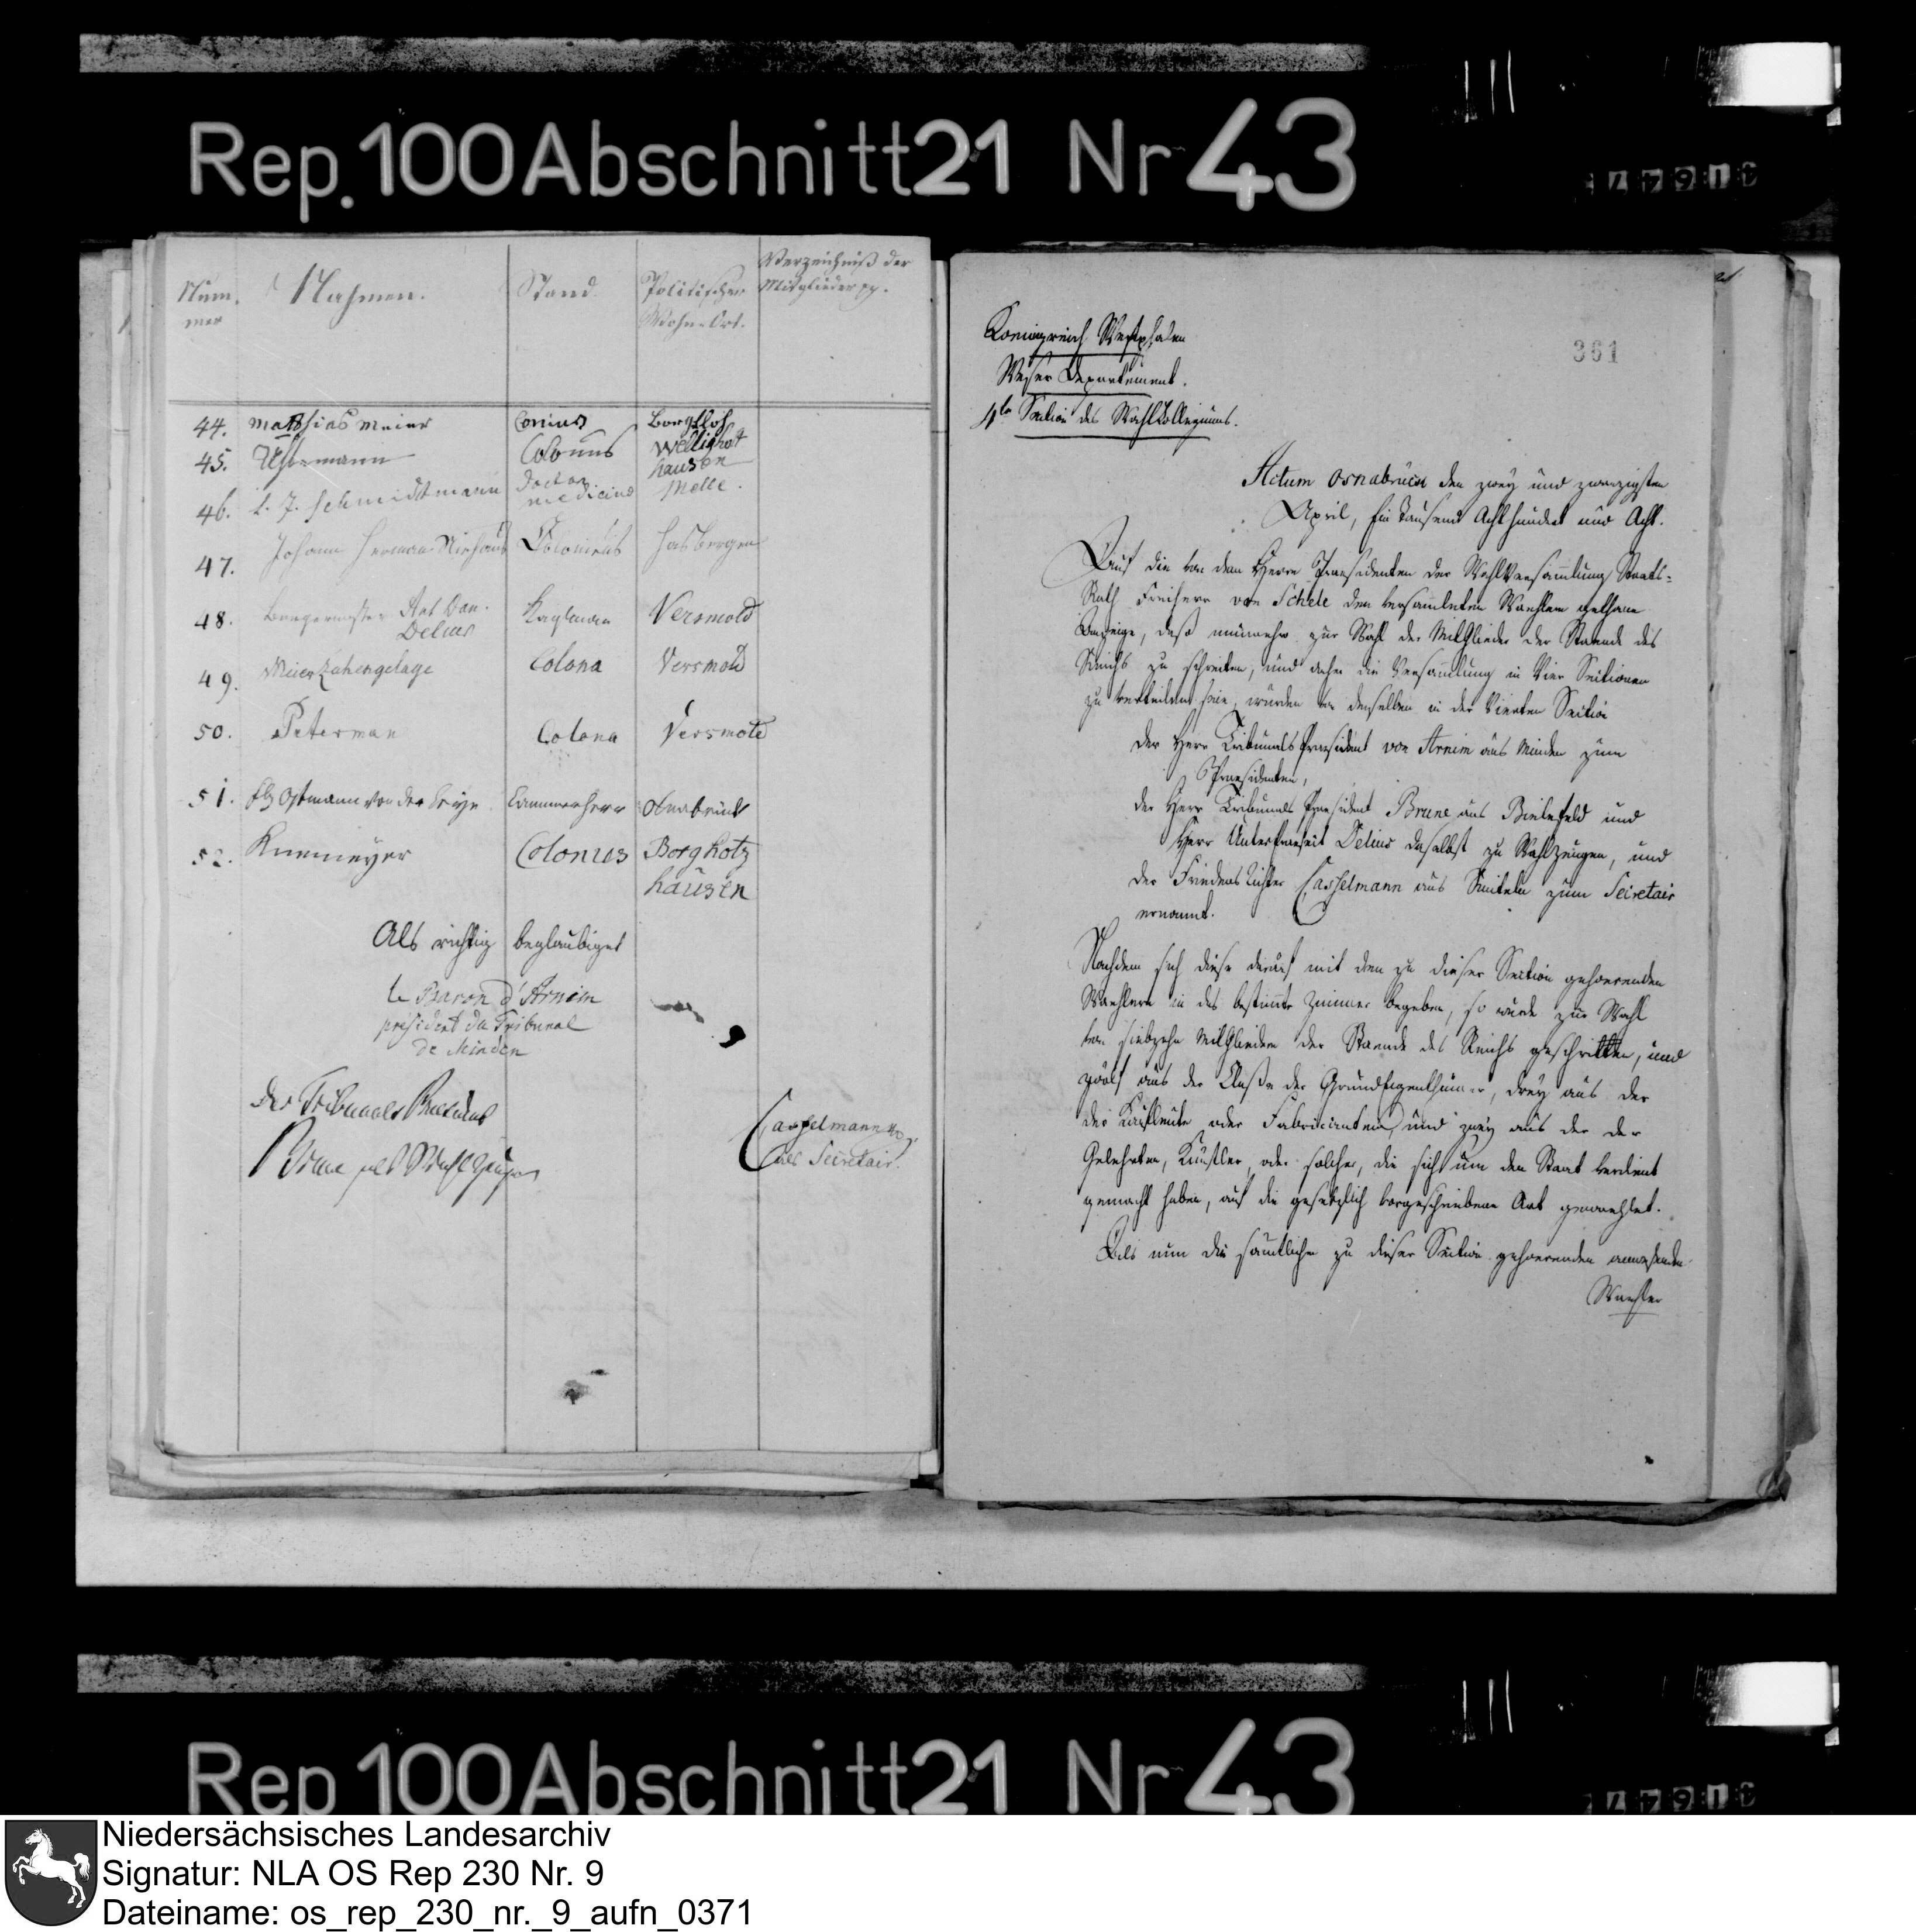 Rep. 100 Abschnitt 21 Nr 43
Num-
mer
Nahmen.
Stand.
Politischer
Wohn-Ort.
Verzeichniß der
Mitglieder pp.
44. Matthias Meier Borgloh
45. Colonus Wellingholt
hausen
46. Schmidtmann Doctor
medicinae Melle.
47. Johann Herman Niehaus Colonus Hasbergen
48. Burgermeister Ant Dan.
Delius Kaufman Versmold
49. Meier Colona Versmold
50. Peterman Colona Versmold
51. Ostmann von der Leye Cammerherr Osnabrück
52. Knemeyer Colonus Borgholz
hausen
Als richtig beglaubiget
le Baron d'Arnim
president du Tribunal
de Minden
Der Tribunals President
Brune als Wahlzeuge
Casselmann
als Secretair.
361
Koenigreich Westphalen
Weser Departement.
4te Section des Wahlkollegiums.
Actum Osnabrück den zwey und zwanzigsten
April, Ein Tausend Acht hundert und Acht.
Auf die von dem Herrn Praesidenten der Wahlversammlung Staats-
Rath Freiherr von Schele den versammleten Waehlern gethane
Anzeige, daß nunmehr zur Wahl der Mitglieder der Staende des
Reichs zu schreiten, und daher die Versammlung in Vier Sectionen
zu vertheilen seie, wurden von denselben in der Vierten Section
der Herr Tribunals Praesident von Arnim aus Minden zum
Praesidenten,
der Herr Tribunals Praesident Brune aus Bielefeld und
Herr Unterpraefect Delius daselbst zu Wahlzeugen, und
der Friedens Richter Casselmann aus Rinteln zum Secretair
ernannt.
Nachdem sich diese darauf mit den zu dieser Section gehoerenden
Waehlern in das bestimte Zimmer begeben, so wurde zur Wahl
von siebzehn Mitgliedern der Staende des Reichs geschritten, und
zwölf aus der Klaße der Grundeigenthümer, drey aus der
der Kaufleute oder Fabricanten, und zwey aus der der
Gelehrten, Künstler, oder solcher, die sich um den Staat verdient
gemacht haben, auf die gesetzlich vorgeschriebene Art gewaehlet.
Als nun die sämtlichen zu dieser Section gehoerenden anwesenden
Waehler
Rep 100 Abschnitt 21 Nr 43
Niedersächsisches Landesarchiv
Signatur: NLA OS Rep 230 Nr. 9
Dateiname: os_rep_230_nr._9_aufn_0371